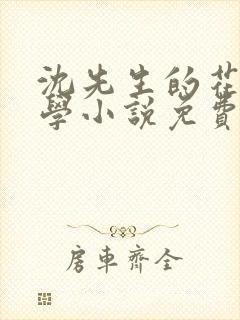 沈先生的花
學小說免費
房車齊全